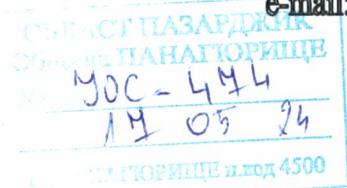 e-mail:
ОБЛАСТ ПАЗАРДЖИК
Община ПАНАГЮРИЩЕ
УОС-474
17 05 24
ПАНАГЮРИЩЕ п.код 4500